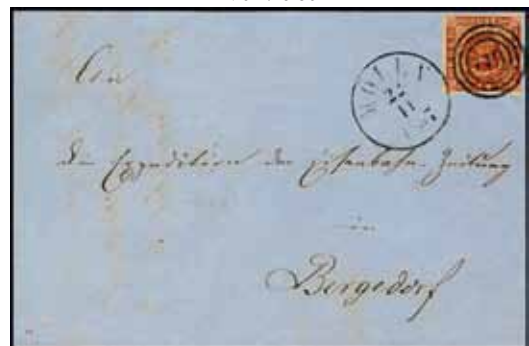 An
MÖLLN
22
11
die Expedition der Eisenbahn-Zeitung
in
Bergedorf